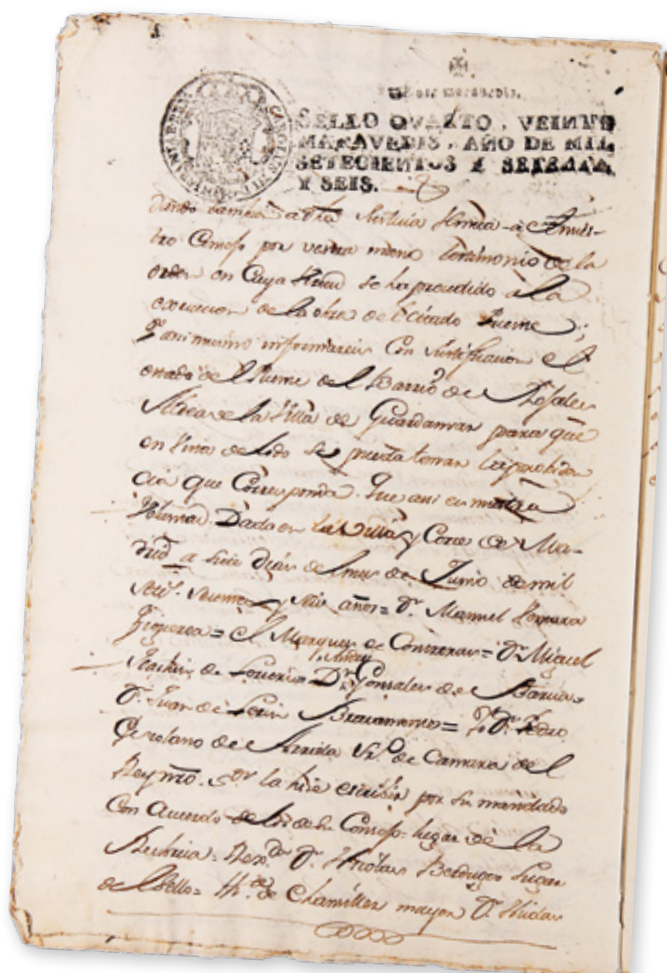 SELLO QVARTO, VEINTE
MARAVEDIS, AÑO DE MIL
SETECIENTOS Y SETENTA
Y SEIS.
tro Consejo por vuestra mano testimonio de la
orden en cuya se ha procedido a la
execucion de la obra de el citado Puente;
que asi mismo informareis con Justificacion el
estado de el Puente de el Barrio de Rojales
Aldea de la Villa de Guardamar para que
en vista de todo se pueda tomar la providen
cia que Corresponda. Que asi es nuestra
Voluntad. Dada en la Villa y Corte de Ma-
drid a siete dias de el mes de Junio de mil
setecientos setenta y seis años = Dn. Manuel Ventura
Figueroa = El Marques de Contreras = Dn. Miguel
Joachin de Lorieri = Dn. Gonzalez de Barcia =
Dn. Juan de Bracamonte = Yo Dn. Pedro
Escolano de Arrieta de Camara de el
Rey nro. Sor. la hice escribir por su mandado
Con Acuerdo de los de su Consejo. lugar de la
Rubrica = Dn. Nicolas Berdugo = lugar
de el Sello = de Chanciller mayor Dn. Nicolas